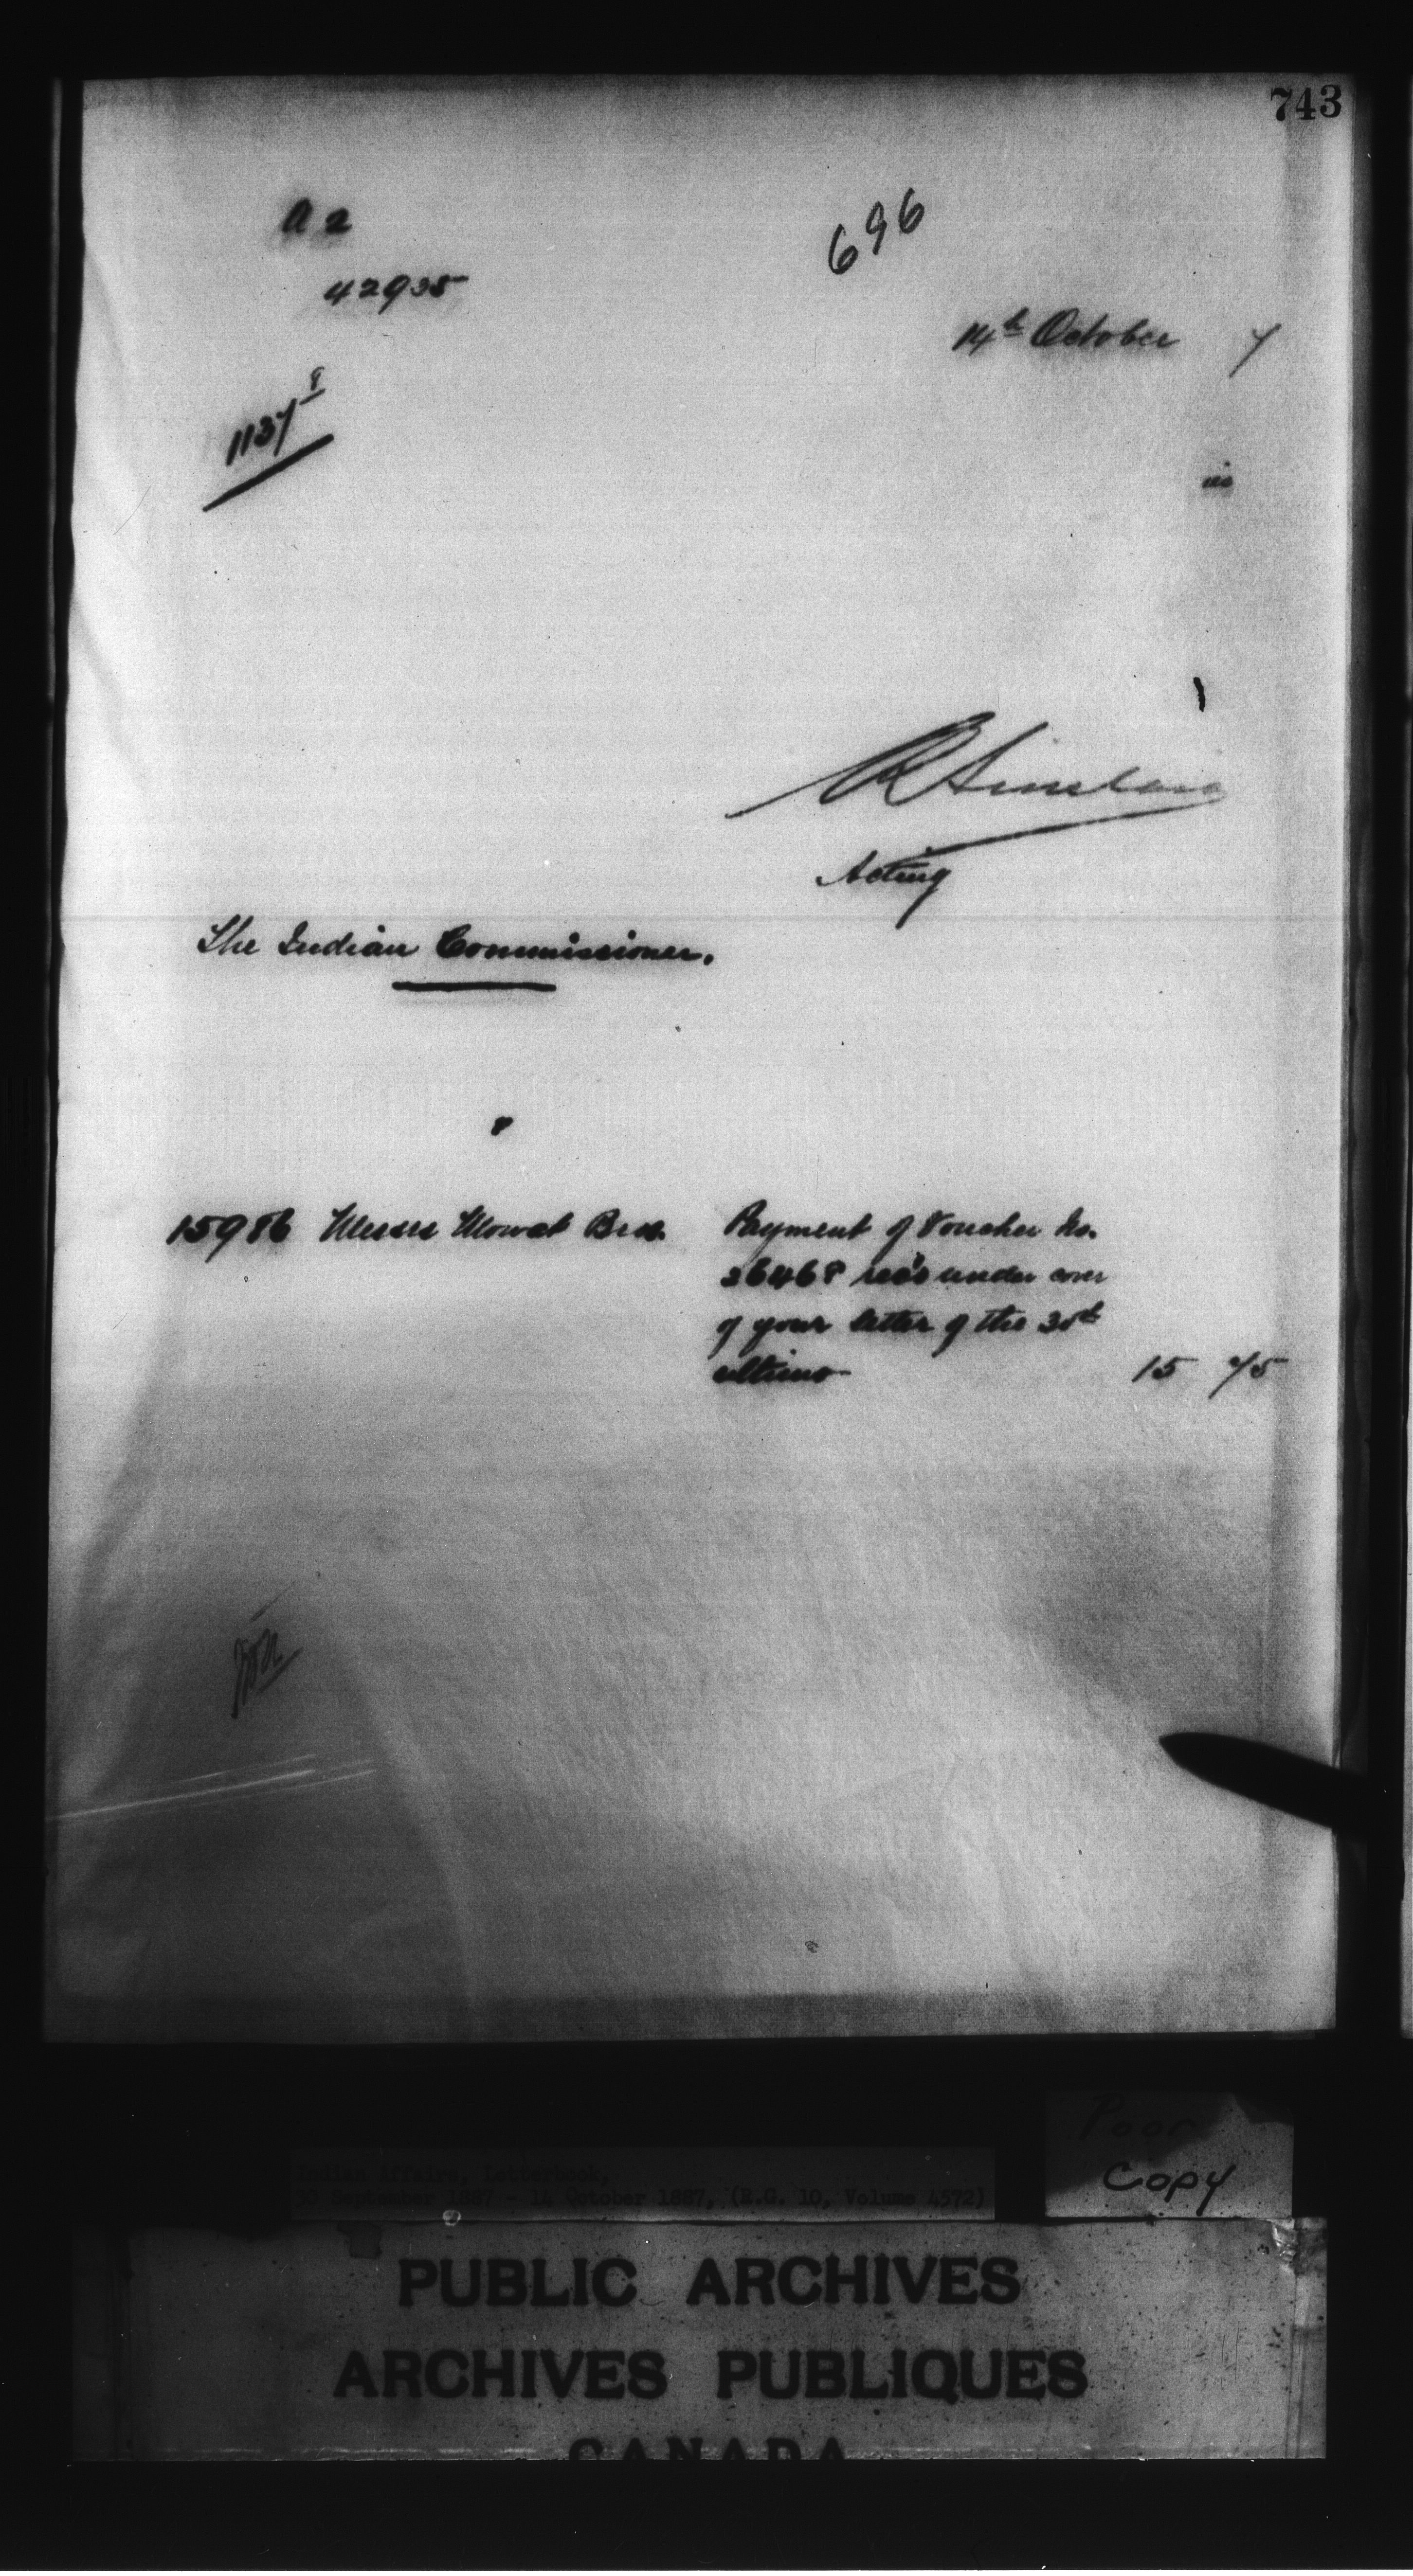 743
A 2
696
42935
14th October 7
1137 8
is
R Sinclair
Acting
The Indian Commissioner.
15986 Messrs Mowat Bros. Payment of Voucher No.
26468 rec'd under cover
of your letter of the 30th
ultimo 15 75
Poor
Copy
Indian Affairs, Letterbook,
30 September 1887 - 14 October 1887, (R.G. 10, Volume 4572)
PUBLIC ARCHIVES
ARCHIVES PUBLIQUES
CANADA